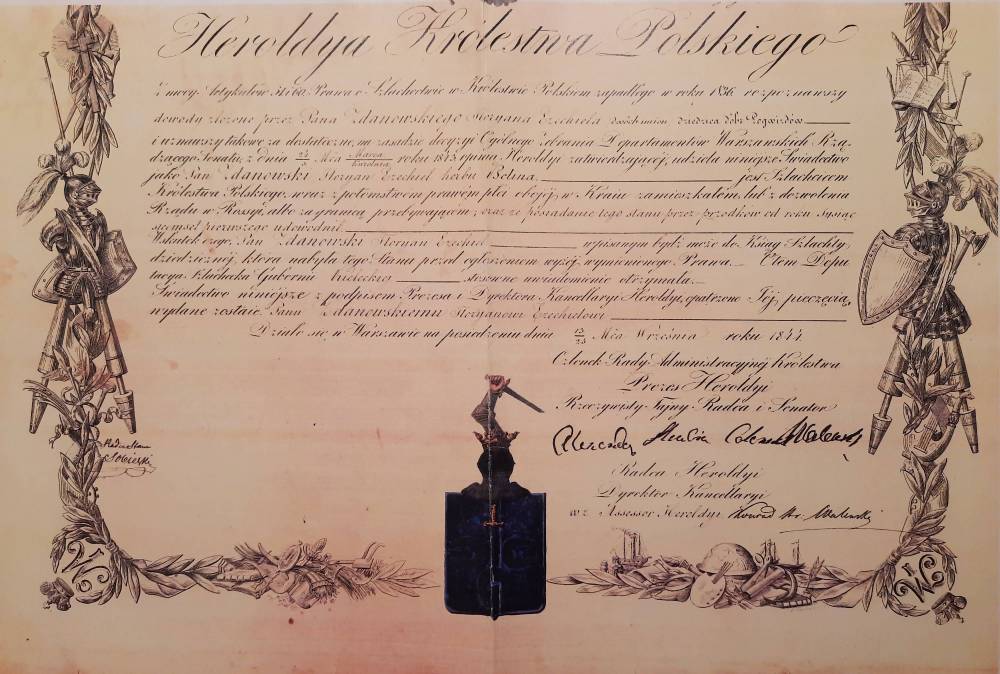 Heroldya Królestwa Polskiego
z mocy Artykułów 51 i 60 Prawa o Szlachectwie w Królestwie Polskiem zapadłego w roku 1836 rozpoznawszy
dowody złożone przez Pana Zdanowskiego Stoyana Ezechiela dwóch imion dziedzica dóbr Pogwizdów
i uznawszy takowe za dostateczne, na zasadzie decyzyi Ogólnego Zebrania Departamentów Warszawskich Rzą-
dzącego Senatu, z dnia Mca Marca Kwietnia roku 1843 opinią Heroldyi zatwierdzającej, udziela niniejsze Świadectwo
jako Pan Zdanowski Stoyan Ezechiel herbu Bolina, jest Szlachcicem
Królestwa Polskiego, wraz z potomstwem prawem płci obojej, w Kraju zamieszkałem, lub z dozwolenia
Rządu w Rossyi, albo za granicą przebywającem; oraz że posiadanie tego stanu przez przodków od roku tysiąc
siemset pierwszego udowodnił.
Wskutek czego, Pan Zdanowski Stoyan Ezechiel wpisanym bydź może do Ksiąg Szlachty
dziedzicznej, która nabyła tego stanu przed ogłoszeniem wyżej wymienionego Prawa. O tem Depu-
tacya Szlachecka Gubernii Kieleckiej stosowne uwiadomienie otrzymała.
Świadectwo niniejsze z podpisem Prezesa i Dyrektora Kancellaryi Heroldyi, opatrzone Jej pieczęcią,
wydane zostaje Panu Zdanowskiemu Stoyanowi Ezechielowi
Działo się w Warszawie na posiedzeniu dnia 13/25 Mca Września roku 1844
Członek Rady Administracyjnej Królestwa
Prezes Heroldyi
Rzeczywisty Tajny Radca i Senator
Alexander Colonna Walewski
Radca Heroldyi
Dyrektor Kancellaryi
w z Assessor Heroldyi Konrad Walewski
Sobieski